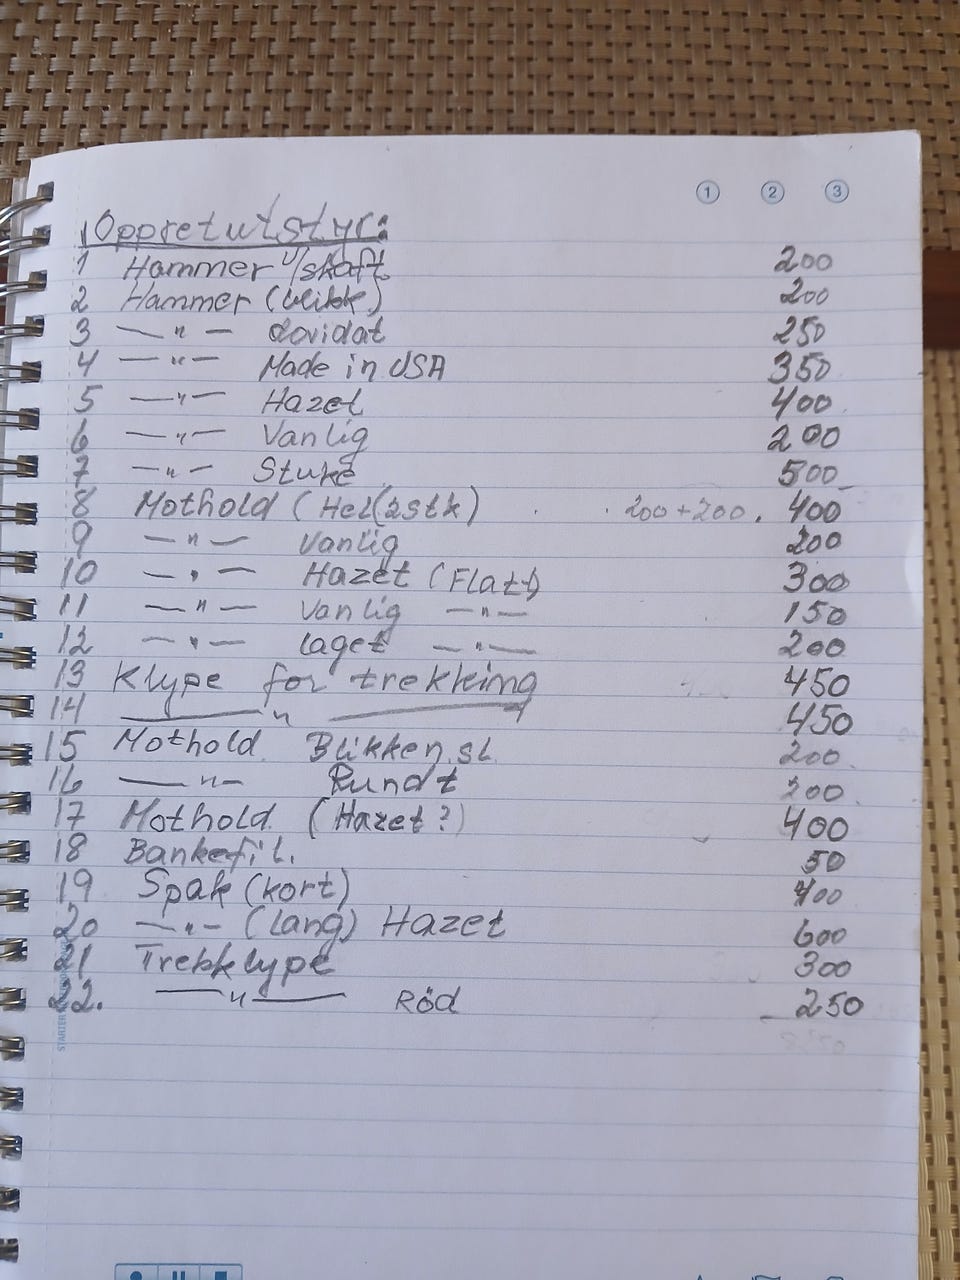 1 2 3
Oppretutstyr:
1 Hammer u/skaft 200
2 Hammer (blikk) 200
3 —"— 250
4 —"— Made in USA 350
5 —"— Hazet 400
6 —"— Vanlig 200
7 —"— Stuke 500
8 Mothold (Hel(2stk) 200+200. 400
9 —"— Vanlig 200
10 —"— Hazet (Flatt) 300
11 —"— Vanlig —"— 150
12 —"— laget —"— 200
13 Klype for trekking 450
14 —"— 450
15 Mothold Blikken.sl. 200
16 —"— Rundt 200
17 Mothold (Hazet?) 400
18 Bankefil. 50
19 Spak (kort) 400
20 —"— (lang) Hazet 600
21 Trekklype 300
22. —"— Röd 250